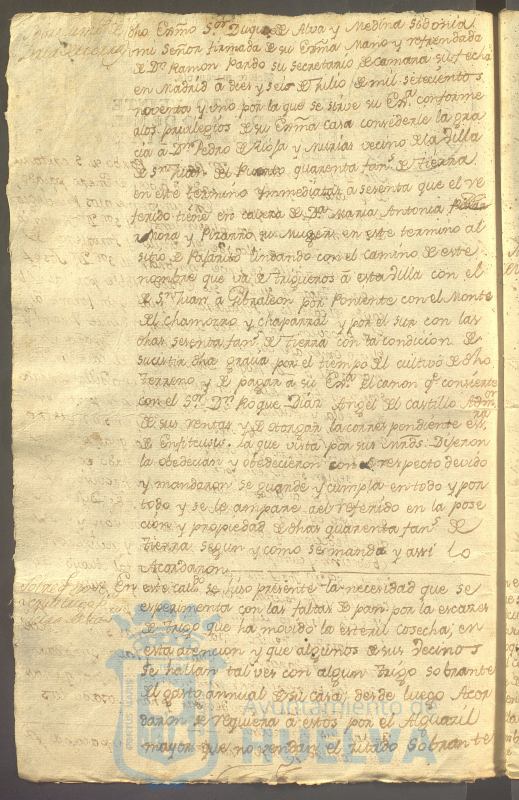 dho Exmo Sor Duque de Alva y Medina Sidonia
mi Señor firmada de su Exma Mano y refrendada
de Dn Ramon Pardo su Secretario de Camara su fecha
en Madrid a diez y seis de Julio de mil setecientos
noventa y uno por la que se sirve su Exa conforme
a los privilegios de su Exma Casa concederle la gra
cia a Dn Pedro de Rioja y vecino de la Villa
de Sn Juan del Puerto quarenta fans de tierra
en este termino immediatas a sesenta que el re
ferido tiene en cavera de Da Maria Antonia
Mora y Pizarro su Muger en este termino al
sitio de lindando con el camino de este
nombre que va de trigueros a esta Villa con el
de Sn Juan a Gibraleon por Poniente con el Monte
del Chamorro y chaparral y por el sur con las
dhas sesenta fans de tierra con la condicion de
dha gracia por el tiempo del cultivo de dho
terreno y de pagar a su Exa el canon qe consiente
con el Sor Dn Roque Diaz Angel del Castillo Admor
de sus rentas y de otorgar la correspondiente essra
de Enfiteusis. la que vista por sus mrds. Dijeron
la obedecian y obedecieron con el respecto devido
y mandaron se guarde y cumpla en todo y por
todo y se le ampare al referido en la pose
cion y propiedad de dhas quarenta fans de
tierra segun y como se manda y assi lo
Acordaron
En este cavdo se hiso presente la necesidad que se
experimenta con las faltas de pan por la escases
de trigo que ha movido la esteril Cosecha; en
esta atencion y que algunos de sus vecinos
se hallan tal ves con algun trigo sobrante
del gasto annual de su casa; desde luego Acor
daron se requiera a estos por el Alguazil
mayor que no vendan el citado sobrante
Ayuntamiento de
HUELVA
PORTUS MARIS